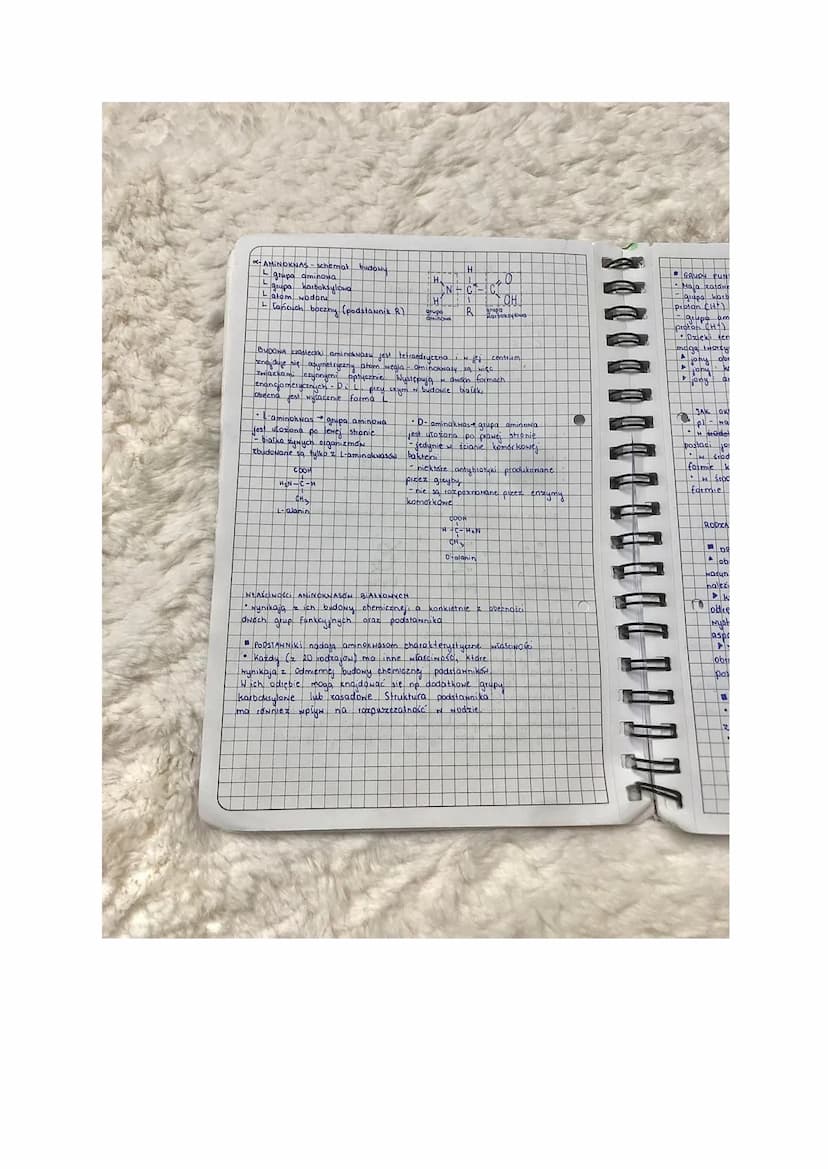 α-AMINOKWAS - schemat budowy
L grupa aminowa
L grupa karboksylowa
L atom wodoru
L łańcuch boczny (podstawnik R)
H
H O
N - C* - C
H OH
R
grupa aminowa
grupa karboksylowa
BUDOWA cząsteczki aminokwasu jest tetraedryczna i w jej centrum
znajduje się asymetryczny atom węgla - aminokwasy są więc
związkami czynnymi optycznie. Występują w dwóch formach
enancjometrycznych - D i L, przy czym w budowie białek
obecna jest wyłącznie forma L
• L-aminokwas → grupa aminowa
jest ułożona po lewej stronie
- białka żywych organizmów
zbudowane są tylko z L-aminokwasów
COOH
H₂N-C-H
CH₃
L-alanin
• D-aminokwas → grupa aminowa
jest ułożona po prawej stronie
- jedynie w ścianie komórkowej
bakterii
- niektóre antybiotyki produkowane
przez grzyby
- nie są rozpoznawane przez enzymy
komórkowe
COOH
H-C-H₂N
CH₃
D-alanin
WŁAŚCIWOŚCI AMINOKWASÓW BIAŁKOWYCH
• wynikają z ich budowy chemicznej, a konkretnie z obecności
dwóch grup funkcyjnych oraz podstawnika
■ PODSTAWNIKI nadają aminokwasom charakterystyczne właściwości
• Każdy (z 20 rodzajów) ma inne właściwości, które
wynikają z odmiennej budowy chemicznej podstawników
W ich obrębie mogą znajdować się np dodatkowe grupy
karboksylowe lub zasadowe. Struktura podstawnika
ma również wpływ na rozpuszczalność w wodzie.
■ GRUPY
• Mają
- grupa
proton (H⁺)
- grupa
proton (H⁺)
• Dzięki
mogą
▶ jony
▶ jony
▶ jony
JAK
pI -
• w
postaci
• w
formie
• w
formie
RODZA